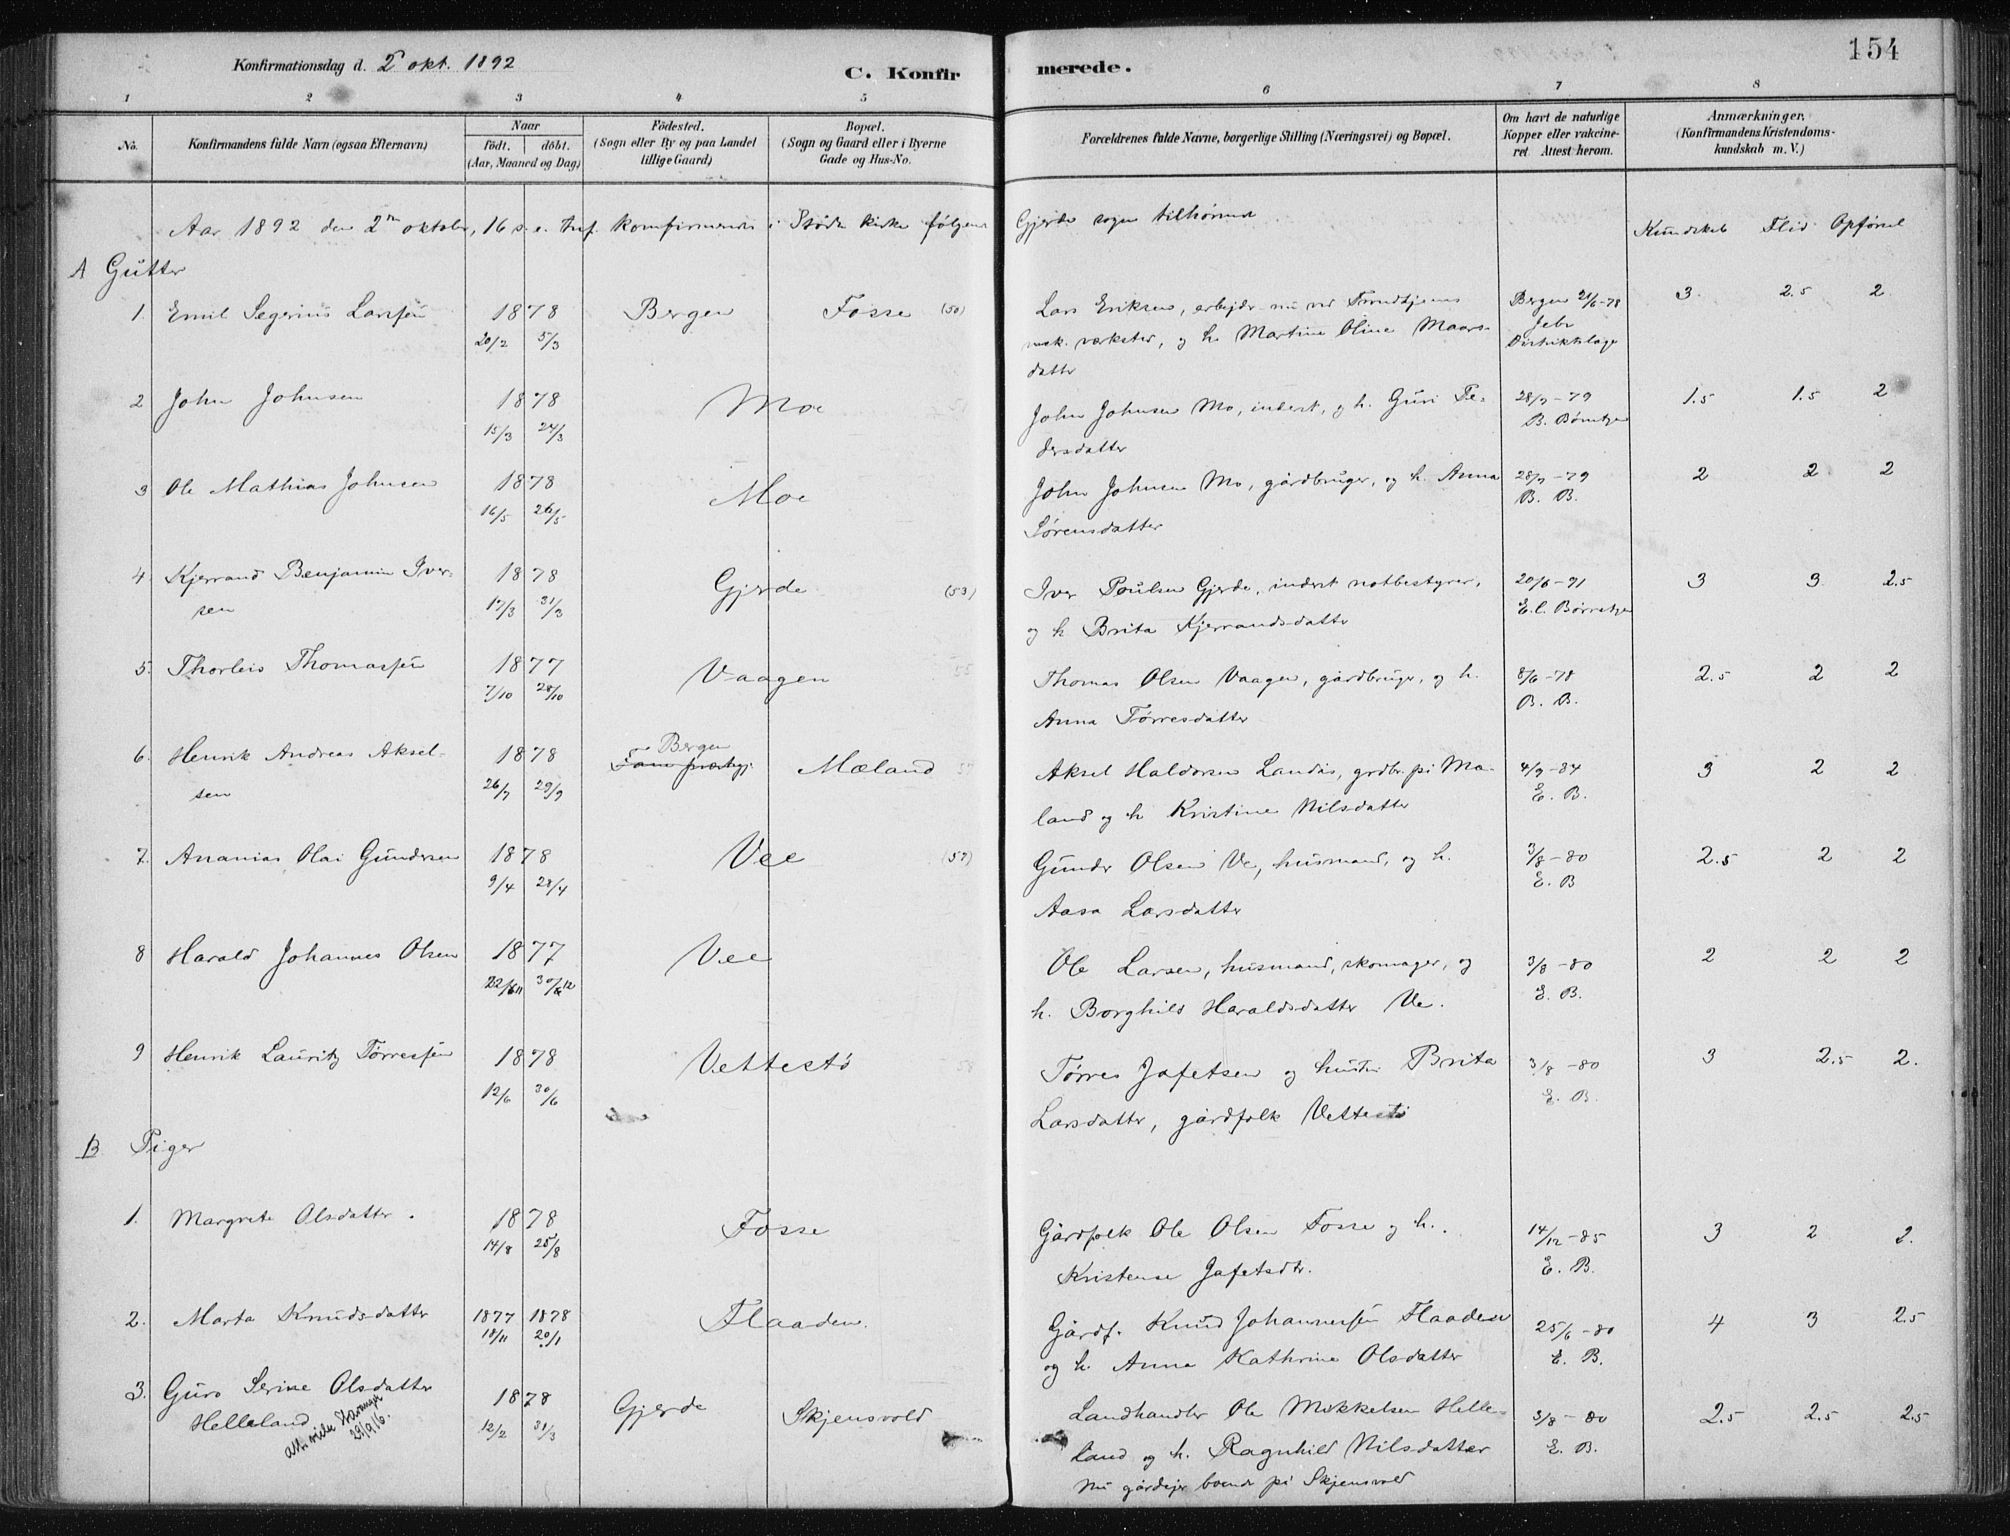 154
Konfirmationsdag d. 2 okt. 1892
C. Konfirmerede.
1 2 3 4 5 6 7 8
No. Konfirmandens fulde Navn (ogsaa Efternavn) Naar födt. döbt. (Aar, Maaned og Dag) Födested. (Sogn eller By og paa Landet lillige Gaard) Bopæl. (Sogn og Gaard eller i Byerne Gade og Hus-No. Forældrenes fulde Navne, borgerlige Stilling (Næringsvei) og Bopæl. Om havt de naturlige Kopper eller vakcineret Attest herom. Anmærkninger, (Konfirmandens Kristendomskundskab m. V.)
Aar 1892 den 2den oktober, 16 s. e. Tref. konfirmeredes i Støde kirke følgende Gjerde sogn tilhørende
Kundskab Flid Opførsel
A Gutter
1. Emil Segerius Larssen 1878 20/2 5/3 Bergen Fosse (50)
Lars Eriksen, arbejder nu ved Trondhjems
mek. værksted, og h. Martine Oline Maars-
datter
Bergen 21/6-78
3. 2.5 2
2 John Johnsen 1878 15/3 24/3 Moe
John Johnsen Mo, inderst, og h. Guri Pe-
dersdatter
28/7-79
1.5 1.5 2
3 Ole Mathias Johnsen 1878 16/5 26/5 Moe
John Johnsen Mo, gårdbruger, og h. Anna
Sørensdatter
28/7-79
B. B.
2 2 2
4. Kjerrand Benjamin Iver-
sen 1878 17/3 31/3 Gjerde (53)
Iver Poulsen Gjerde, inderst notbestyrer,
og h Brita Kjerrandsdatter
20/6-91
3 3 2.5
5. Thorleis Thomassen 1877 7/10 28/10 Vaagen 55
Thomas Olsen Vaagen, gårdbruger, og h.
Anna Tørresdatter
8/6-78
B. B.
2.5 2 2
6. Henrik Andreas Aksel-
sen 1878 26/7 29/9 Bergen Mæland 57
Aksel Haldorsen Landås, grdbr. på Mæ-
land og h Kristine Nilsdatter
4/7-84
E. B.
3 2 2
7. Ananias Olai Gundersen 1878 9/4 28/4 Vee (57)
Gunder Olsen Ve, husmand, og h.
Aasa Larsdatter
3/8-80
E. B
2.5 2 2
8 Harald Johannes Olsen 1877 Vee
Ole Larsen, husmand, skomager, og
h. Borghild Haraldsdatter Ve.
3/8-80
E. B.
2 2 2
9 Henrik Lauritz Tørressen 1878 12/6 30/6 Vettestø 58
Tørres Jafetsen og hustru Brita
Larsdatter, gårdfolk Vettestø
3/8-80
E. B.
3 2.5 2.
B Piger
1. Margrete Olsdatter. 1878 14/8 25/8 Fosse
Gårdfolk Ole Olsen Fosse og h.
Kristense Jafetsdtr.
14/12-85
E. B.
3 2 2.
2. Marta Knudsdatter 1877 18/11 1878 20/1 Flaaden.
Gårdf. Knud Johannessen Flaaden
og h. Anna Kathrine Olsdatter
25/6-80
E. B.
4 3 2.5
3. Guro Serine Olsdatter
Helleland 1878 12/2 31/3 Gjerde Skjensvold
29/9 16.
Landhandler Ole Mikkelsen Helle-
land og h. Ragnhild Nilsdatter
nu gårdejer boende på Skjensvold
3/8-80
E. B.
2.5 2.5 2.5